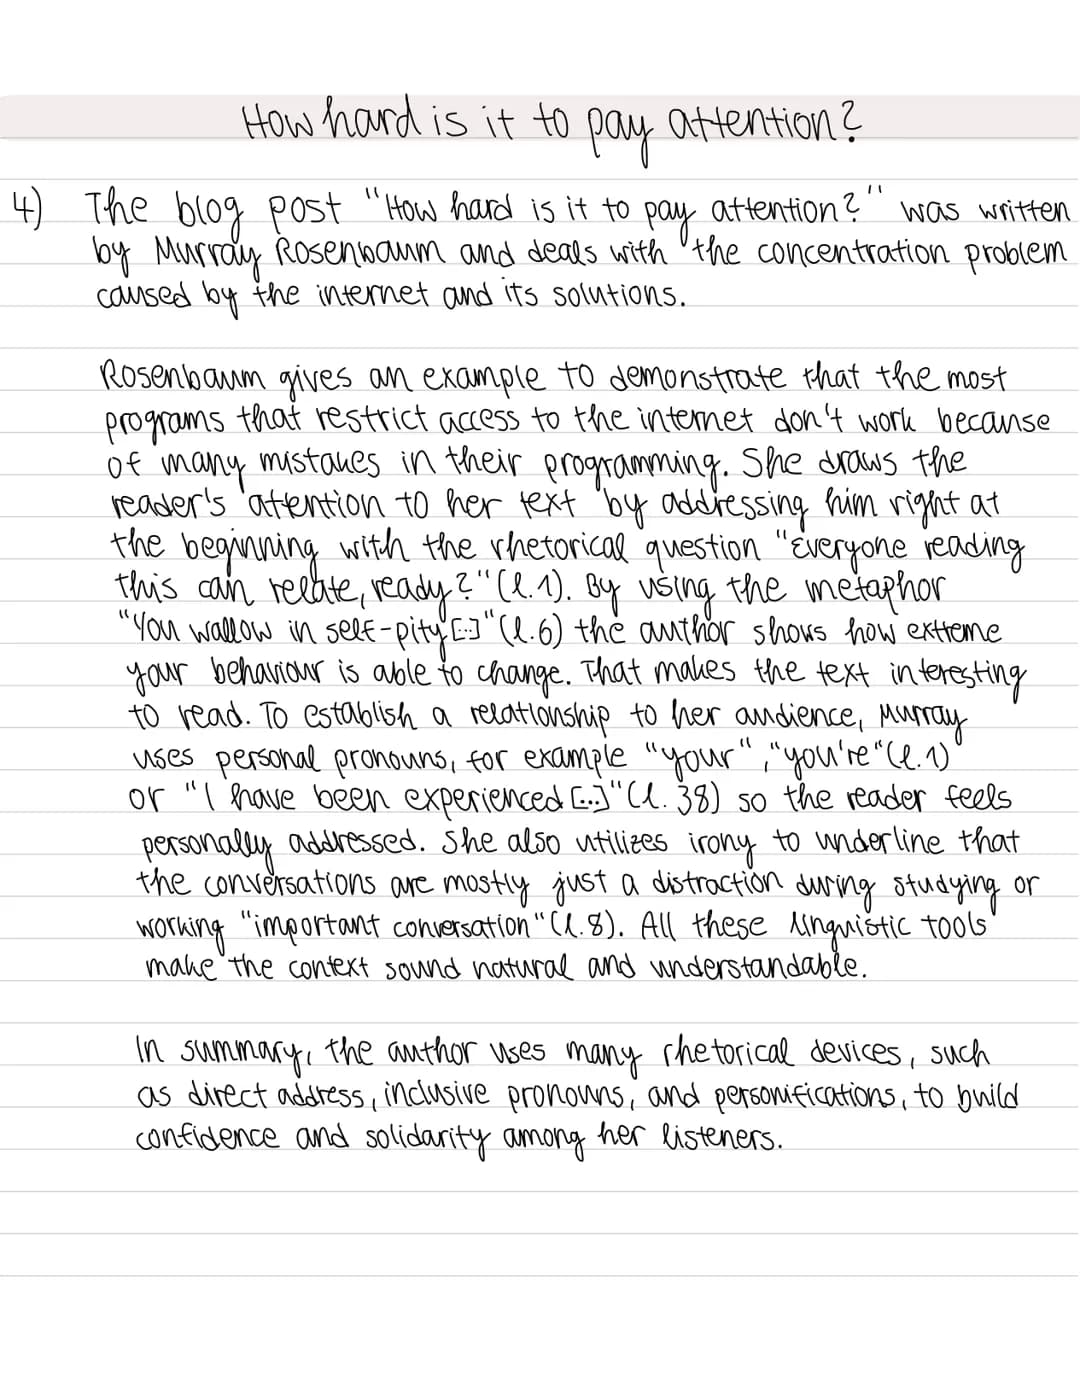 How hard is it to pay attention?
4) The blog post "How hard is it to pay attention?" was written
by Murray Rosenbaum and deals with the concentration problem
caused by the internet and its solutions.
Rosenbaum gives an example to demonstrate that the most
programs that restrict access to the internet don't work because
of many mistakes in their programming. She draws the
reader's attention to her text by addressing him right at
the beginning with the rhetorical question "Everyone reading
this can relate, ready?" (l.1). By using the metaphor
"You wallow in self-pity [...]" (l.6) the author shows how extreme
your behaviour is able to change. That makes the text interesting
to read. To establish a relationship to her audience, Murray
uses personal pronouns, for example "your", "you're" (l.1)
or "I have been experienced [...]" (l. 38) so the reader feels
personally addressed. She also utilizes irony to underline that
the conversations are mostly just a distraction during studying or
working "important conversation" (l.8). All these linguistic tools
make the context sound natural and understandable.
In summary, the author uses many rhetorical devices, such
as direct address, inclusive pronouns, and personifications, to build
confidence and solidarity among her listeners.